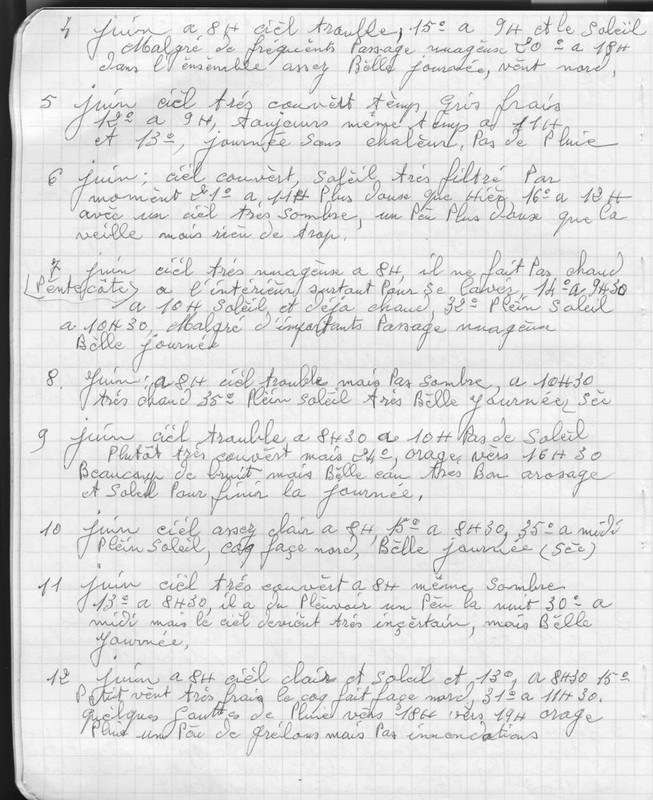 4 juin a 8H cièl trouble, 15° a 9H et le Solèil
Malgré de fréquents Passage nuageuse 20° a 18H
dans l'ensèmble assez Bèlle journée, vènt nord,
5 juin cièl trés couvèrt tèmp gris frais
12° a 9H, toujours même tèmp a 11H
et 13°, journée sans chaleur, Pas de Pluie
6 juin; cièl couvèrt, Solèil trés filtré Par
moment 21° a 11H Plus douse que Hièr, 16° a 12H
avèc un cièl trés Sombre, un Peu Plus douse que la
veille mais rien de trop.
7 juin cièl trés nuageuse a 8H, il ne fait Pas chaud
(Pèntecôte) a l'intérieur surtout Pour Se laver, 14° a 9H30
a 10H Solèil et déja chaud, 32° Plein Solèil
a 10H30, Malgré d'importants Passage nuageux
Bèlle journée
8. Juin; a 8H cièl trouble mais Pas Sombre, a 10H30
trés chaud 35° Plein Solèil trés Bèlle journée (Sèc
9 juin cièl trouble a 8H30 a 10H Pas de Solèil
Plutôt trés couvert mais 24°, orage vèrs 16H30
Beaucoup de bruit mais Bèlle eau trés Bon arosage
et Soleil Pour finir la journée.
10 juin cièl assez clair a 8H, 15° a 8H30, 35° a midi
Plein Solèil, coq façe nord, Bèlle journée (Sèc)
11 juin cièl trés couvèrt a 8H même Sombre
13° a 8H30, il a du Pleuvoir un Peu la nuit 30° a
midi mais le cièl devient trés inçèrtain, mais Bèlle
journée,
12 juin a 8H cièl clair et Soleil et 13°, a 8H30 15°
Petit vènt trés frais le coq fait façe nord, 31° a 11H30.
quelques gouttes de Pluie vèrs 18H vèrs 19H orage
Pluie un Peu de grelons mais Pas innondations